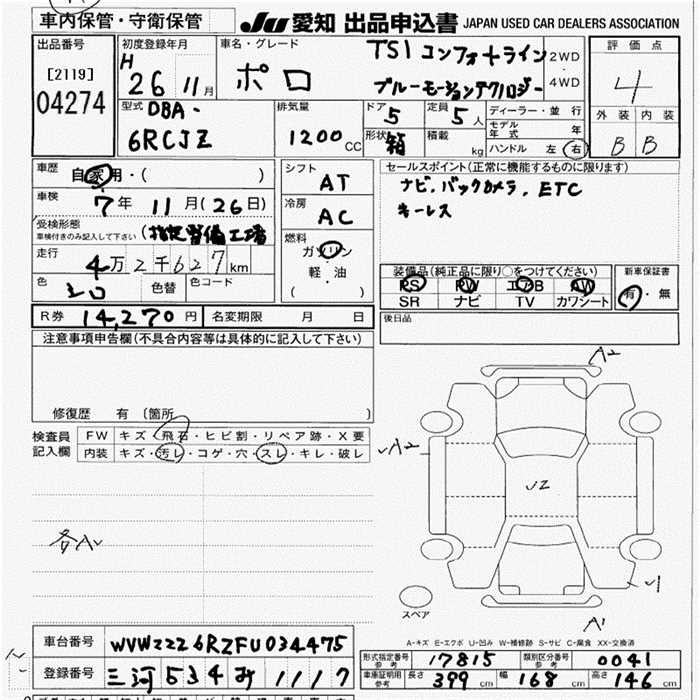 車内保管・守衛保管
JU 愛知 出品申込書 JAPAN USED CAR DEALERS ASSOCIATION
出品番号
[2119]
04274
初度登録年月
H
26年 11月
車名・グレード
ポロ
TSI コンフォートライン
ブルーモーションテクノロジー
2WD
・
4WD
評価点
4
外装 内装
B B
型式 DBA-
6RCJZ
排気量
1200 CC
ドア 5
定員 5人
形状 箱
積載 kg
ディーラー・並行
モデル年式 年
ハンドル 左 右
車歴
自家用・( )
車検
7年 11月(26日)
受検形態
車検付きのみ記入して下さい
(指定整備工場
走行
4万2千627km
色 シロ
色替
色コード
シフト
AT
冷房
AC
燃料
ガソリン
軽・油
( )
セールスポイント(正常に機能するものに限ります)
ナビ、バックカメラ、ETC
キーレス
装備品(純正品に限り○をつけてください)
PS PW エアB AW
SR ナビ TV カワシート
新車保証書
有・無
後日品
R券 14,270円
名変期限 月 日
注意事項申告欄(不具合内容等は具体的に記入して下さい)
修復歴 有 〔箇所 〕
検査員
記入欄
FW キズ・飛石・ヒビ割・リペア跡・X要
内装 キズ・汚レ・コゲ・穴・スレ・キレ・破レ
A2
A2
U2
A1
スペア
A-キズ E-エクボ U-凹み W-補修跡 S-サビ C-腐食 XX-交換済
車台番号 WVWZZZ6RZFU034475
登録番号 三河534み1117
形式指定番号 参考 17815
類別区分番号 参考 0041
車庫証明用 参考
長さ 399cm
幅 168cm
高さ 146cm